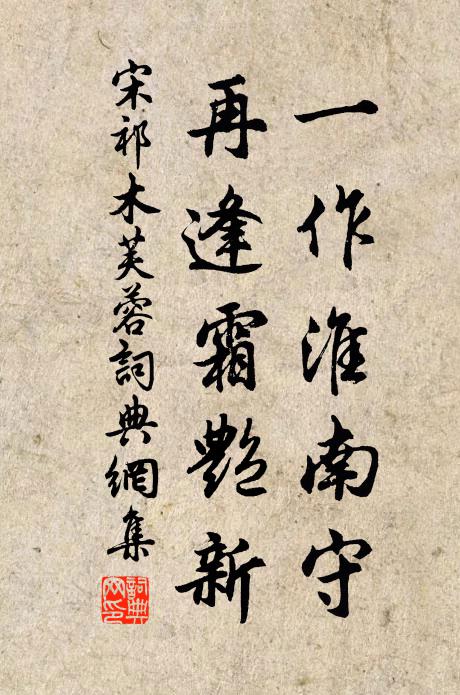 一作淮南守
再逢霜艷新
宋祁木芙蓉詞典網集
詞典
网印